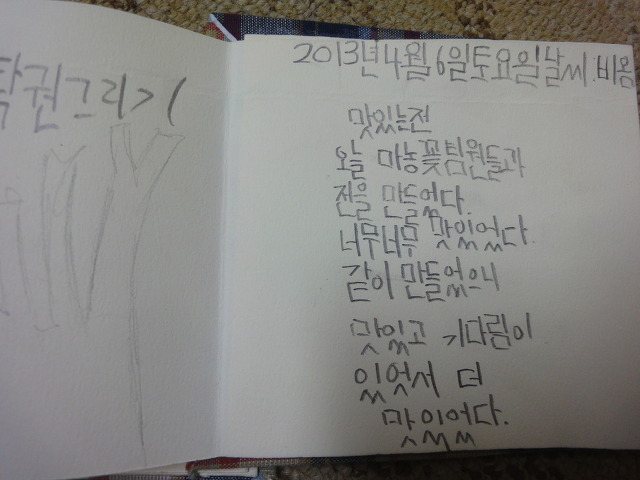 권그리기
2013년 4월 6일 토요일 날씨:비옴
맛있는전
오늘 마농꽃팀원들과
전을 만들었다.
너무너무 맛있었다.
같이 만들었으니
맛있고 기다림이
있엇서 더
맛있었다.